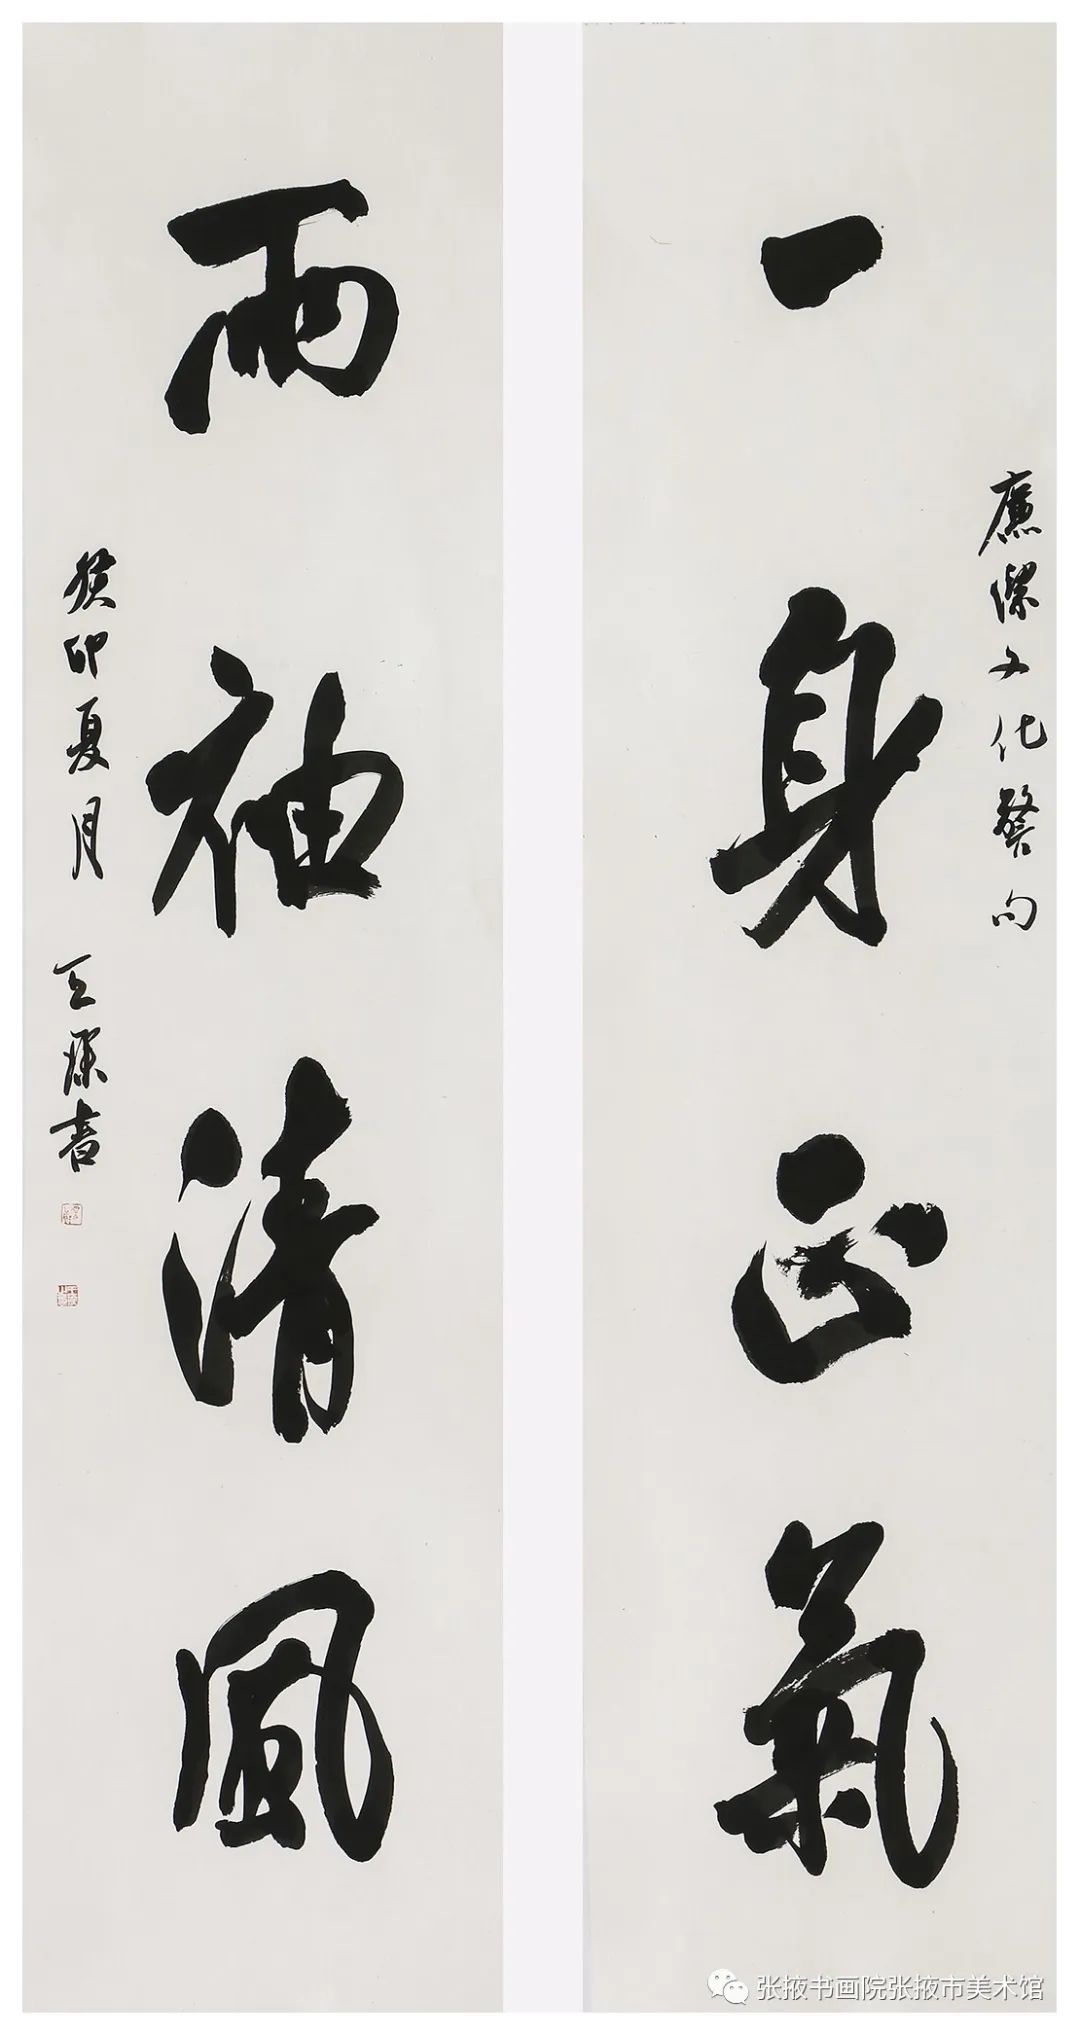 廉潔文化警句
一身正氣
兩袖清風
癸卯夏月
书
张掖书画院张掖市美术馆